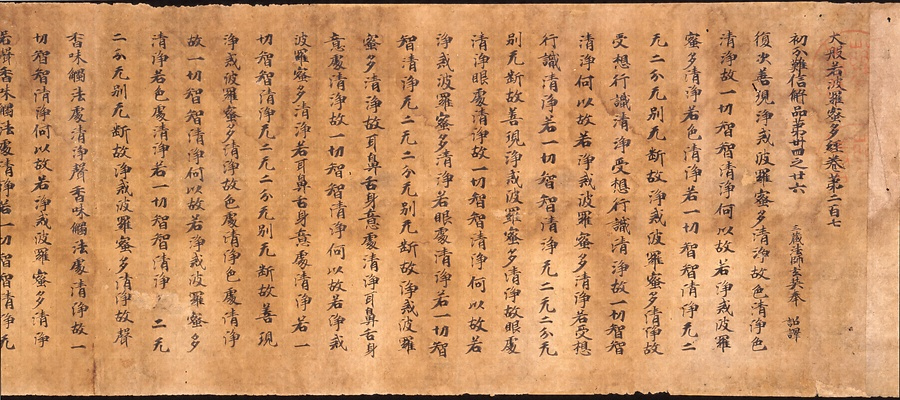 大般若波羅蜜多經卷第二百七
初分難信解品第卅四之廿六 三藏法師玄奘奉 詔譯
復次善現淨戒波羅蜜多清淨故色清淨色
清淨故一切智智清淨何以故若淨戒波羅
蜜多清淨若色清淨若一切智智清淨无二
无二分无別无斷故淨戒波羅蜜多清淨故
受想行識清淨受想行識清淨故一切智智
清淨何以故若淨戒波羅蜜多清淨若受想
行識清淨若一切智智清淨无二无二分无
別无斷故善現淨戒波羅蜜多清淨故眼處
清淨眼處清淨故一切智智清淨何以故若
淨戒波羅蜜多清淨若眼處清淨若一切智
智清淨无二无二分无別无斷故淨戒波羅
蜜多清淨故耳鼻舌身意處清淨耳鼻舌身
意處清淨故一切智智清淨何以故若淨戒
波羅蜜多清淨若耳鼻舌身意處清淨若一
切智智清淨无二无二分无別无斷故善現
淨戒波羅蜜多清淨故色處清淨色處清淨
故一切智智清淨何以故若淨戒波羅蜜多
清淨若色處清淨若一切智智清淨无二无
二分无別无斷故淨戒波羅蜜多清淨故聲
香味觸法處清淨聲香味觸法處清淨故一
切智智清淨何以故若淨戒波羅蜜多清淨
若聲香味觸法處清淨若一切智智清淨无